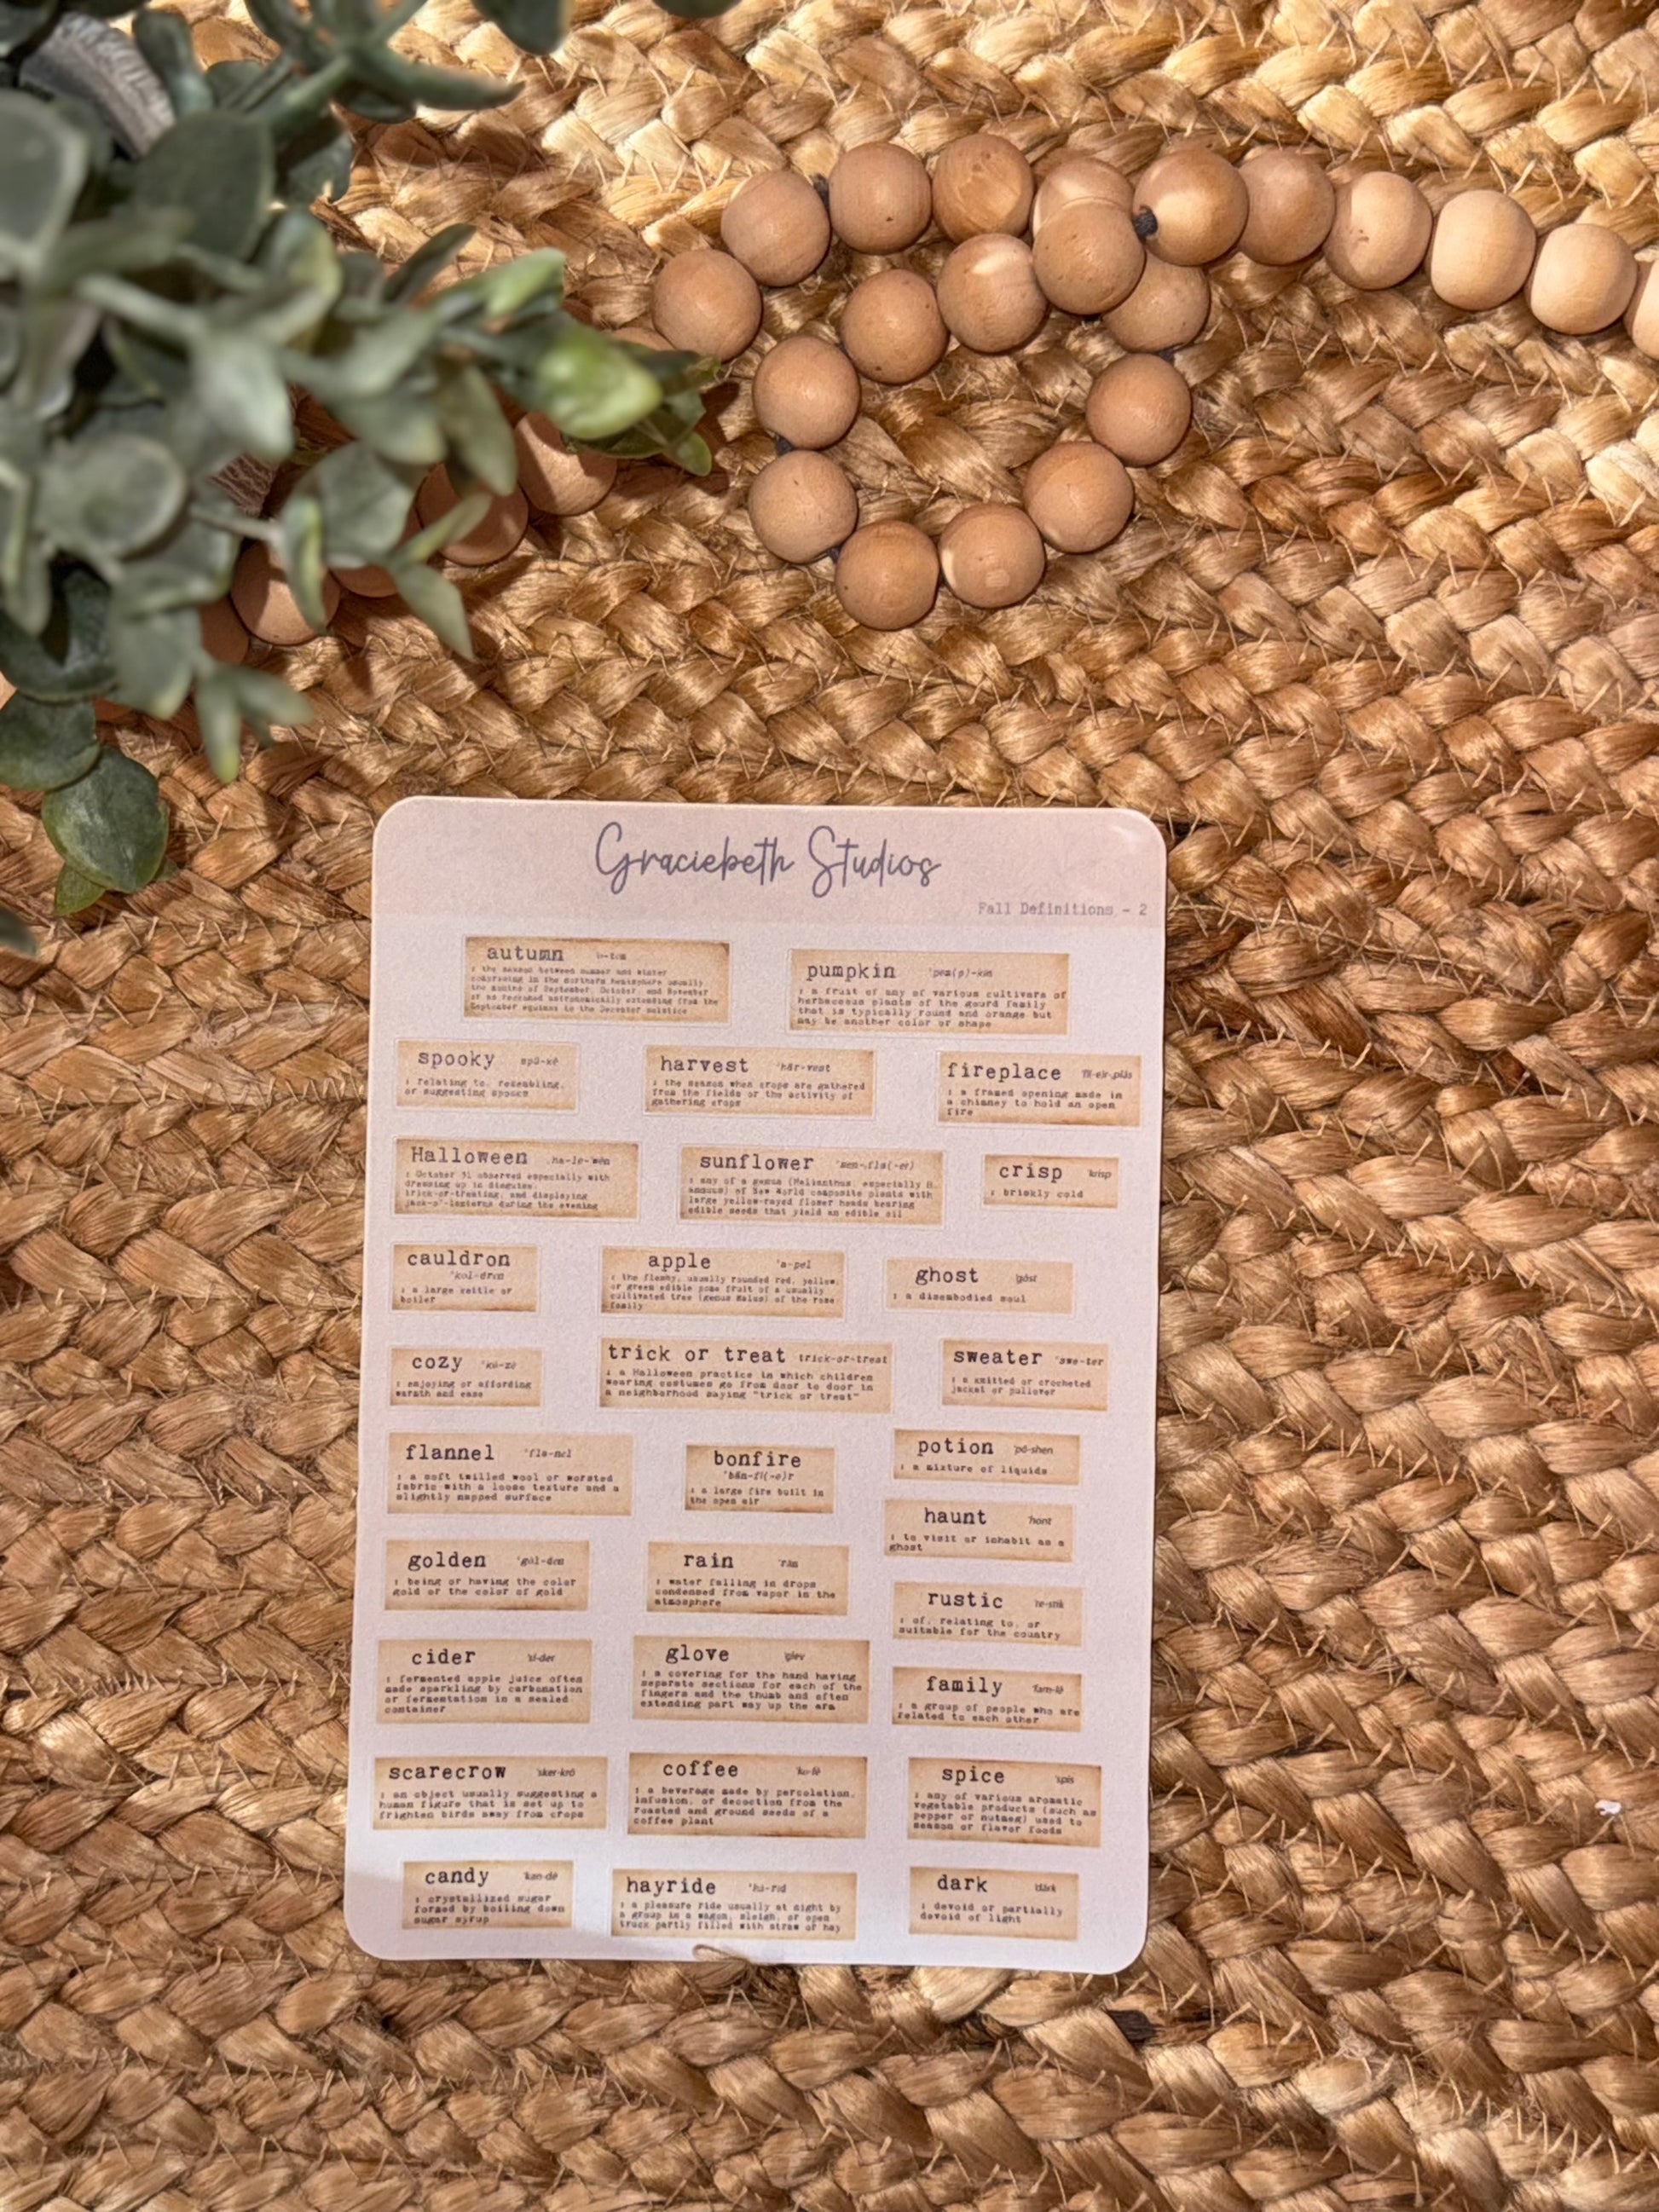 Graciebeth Studios
Fall Definitions - 2
autumn
: the season between summer and winter
comprising in the northern hemisphere usually
the months of September, October, and November
or as reckoned astronomically extending from the
September equinox to the December solstice
pumpkin
: a fruit of any of various cultivars of
herbaceous plants of the gourd family
that is typically round and orange but
may be another color or shape
spooky
: relating to, resembling,
or suggesting spooks
harvest 'här-vəst
: the season when crops are gathered
from the fields or the activity of
gathering crops
fireplace
: a framed opening made in
a chimney to hold an open
fire
Halloween
: October 31 observed especially with
dressing up in disguise,
trick-or-treating, and displaying
jack-o'-lanterns during the evening
sunflower
: any of a genus (Helianthus, especially H.
annuus) of New World composite plants with
large yellow-rayed flower heads bearing
edible seeds that yield an edible oil
crisp 'krisp
: briskly cold
cauldron
'kol-dron
: a large kettle or
boiler
apple 'a-pəl
: the fleshy, usually rounded red, yellow,
or green edible pome fruit of a usually
cultivated tree (genus Malus) of the rose
family
ghost 'gōst
: a disembodied soul
cozy 'kō-zē
: enjoying or affording
warmth and ease
trick or treat trick-or-treat
: a Halloween practice in which children
wearing costumes go from door to door in
a neighborhood saying "trick or treat"
sweater 'swe-tər
: a knitted or crocheted
jacket or pullover
flannel 'fla-nəl
: a soft twilled wool or worsted
fabric with a loose texture and a
slightly napped surface
bonfire
'bän-fī(-ə)r
: a large fire built in
the open air
potion 'pō-shən
: a mixture of liquids
haunt 'hont
: to visit or inhabit as a
ghost
golden 'gōl-dən
: being or having the color
gold or the color of gold
rain 'rān
: water falling in drops
condensed from vapor in the
atmosphere
rustic 'rə-stik
: of, relating to, or
suitable for the country
cider 'sī-dər
: fermented apple juice often
made sparkling by carbonation
or fermentation in a sealed
container
glove 'gləv
: a covering for the hand having
separate sections for each of the
fingers and the thumb and often
extending part way up the arm
family 'fam-lē
: a group of people who are
related to each other
scarecrow 'sker-krō
: an object usually suggesting a
human figure that is set up to
frighten birds away from crops
coffee 'ko-fē
: a beverage made by percolation,
infusion, or decoction from the
roasted and ground seeds of a
coffee plant
spice 'spīs
: any of various aromatic
vegetable products (such as
pepper or nutmeg) used to
season or flavor foods
candy 'kan-dē
: crystallized sugar
formed by boiling down
sugar syrup
hayride 'hā-rīd
: a pleasure ride usually at night by
a group in a wagon, sleigh, or open
truck partly filled with straw or hay
dark 'därk
: devoid or partially
devoid of light